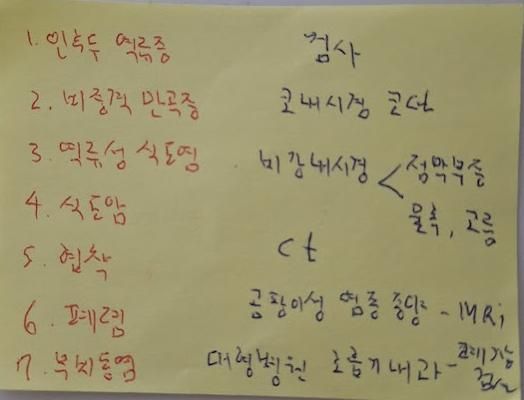 1. 인후두 역류증
2. 비중격 만곡증
3. 역류성 식도염
4. 식도암
5. 협착
6. 폐렴
7. 부비동염
검사
코내시경 진단
비강내시경 < 점막부종
물혹, 고름
ct
곰팡이성 염증 종양 - MRi
대형병원 호흡기내과 - 폐기능
검사